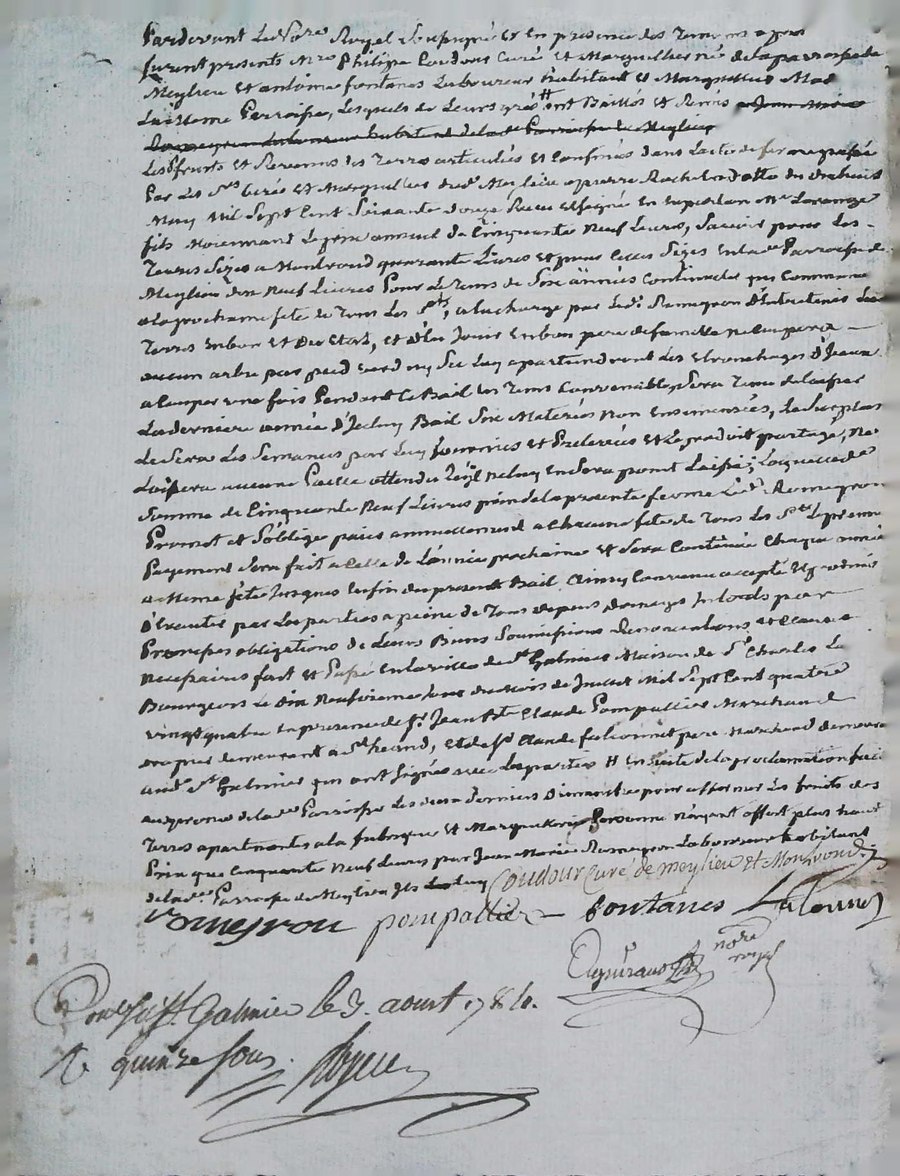 Pardevant Le No.re Royal Soussigné et En presence des Temoins apres
furent presents M.re Philipe Coudour Curé et Marguilliers né de la parroisse de
Meylieu et antoine fontanes Laboureur habitant et Marguillier de la
Meme Parroisse, Lesquels de Leurs gré ont Baillés et Remis a Jean Marie
Romeyron Laboureur habitant de lad.e Parroisse de Meylieu
Les fruits et Revenus des Terres articulées et Confinées dans L'acte de ferme passé
Par Les S.rs Curé et Marguilliers dud. Meylieu a pierre
May Mil Sept Cent Soixante douze Reçu et signé En Expedition M.e
fils Moyennant Le prix annuel de Cinquante Neuf Livres, Savoir pour Les
Terres Sizes a Montrond quarante Livres et pour Celles Sizes En lad.e Parroisse de
Meylieu dix Neuf Livres Pour Le Tems de Six années Continuelles qui Commenceront
a la prochaine fete de Tous Les S.ts, a la charge par Led. Romeyron d'Entretenir Les
Terres En bon Et Du Etat, et d'En Jouir En bon pere de famille ne Coupera
aucun arbre par pied verd ny Sec Luy apartiendront Les Ebronchages d'Iceux
a Couper une fois Pendant Ce Bail En Tems Convenable, Sera Tenu de Laisser
La derniere année d'Iceluy Bail Six Materées Non Ensemencées, Le Surplus
Le Sera Les Semences par Luy fournies et Prelevées et Le produit partagé, Ne
Laissera aucune Paille attendu qu'il ne luy En Sera point Laissé; Laquelle de
Somme de Cinquante Neuf Livres prix de la presente ferme Led. Romeyron
Promet et S'oblige païer annuellement a Chacune fete de Tous Les S.ts Le premier
Payement Sera fait a Celle de L'année prochaine et Sera Continué Chaque année
a Meme fête Jusques En fin du present Bail Ainsy Convenu accepté Et promis
D'Executer par Les parties a peine de Tous depens domages Interets par
Promesses obligations de Leurs Biens Soumissions Renonciations et Clauses
Necessaires fait et Passé En la ville de S.t Galmier Maison de S.r Charles La
Bourgeois Le dix Neuvieme Jour du Mois de Juillet Mil Sept Cent quatre
vingt quatre En presence de S.r Jean B.te Claude Pompallier Marchand
demeurant a S.t heand, et de S.r Claude falconnet pere Marchand demeurant
aud. S.t Galmier qui ont Signés avec Les parties # Ensuite de la proclamation faite
au prone de lad.e Parroisse Les deux derniers Dimanches pour affermer Les fruits des
Terres apartenantes a la fabrique et Marguillerie Personne n'ayant offert plus haut
Prix que Cinquante Neuf Livres par Jean Marie Romeyron Laboureur habitant
de lad.e Parroisse de Meylieu Coudour Curé de meylieu et Montrond.
Romeyron pompallier fontanes falconnet
no.re royal
Con.lé à S.t Galmier le 3. aoust 1784.
R. quinze sous.